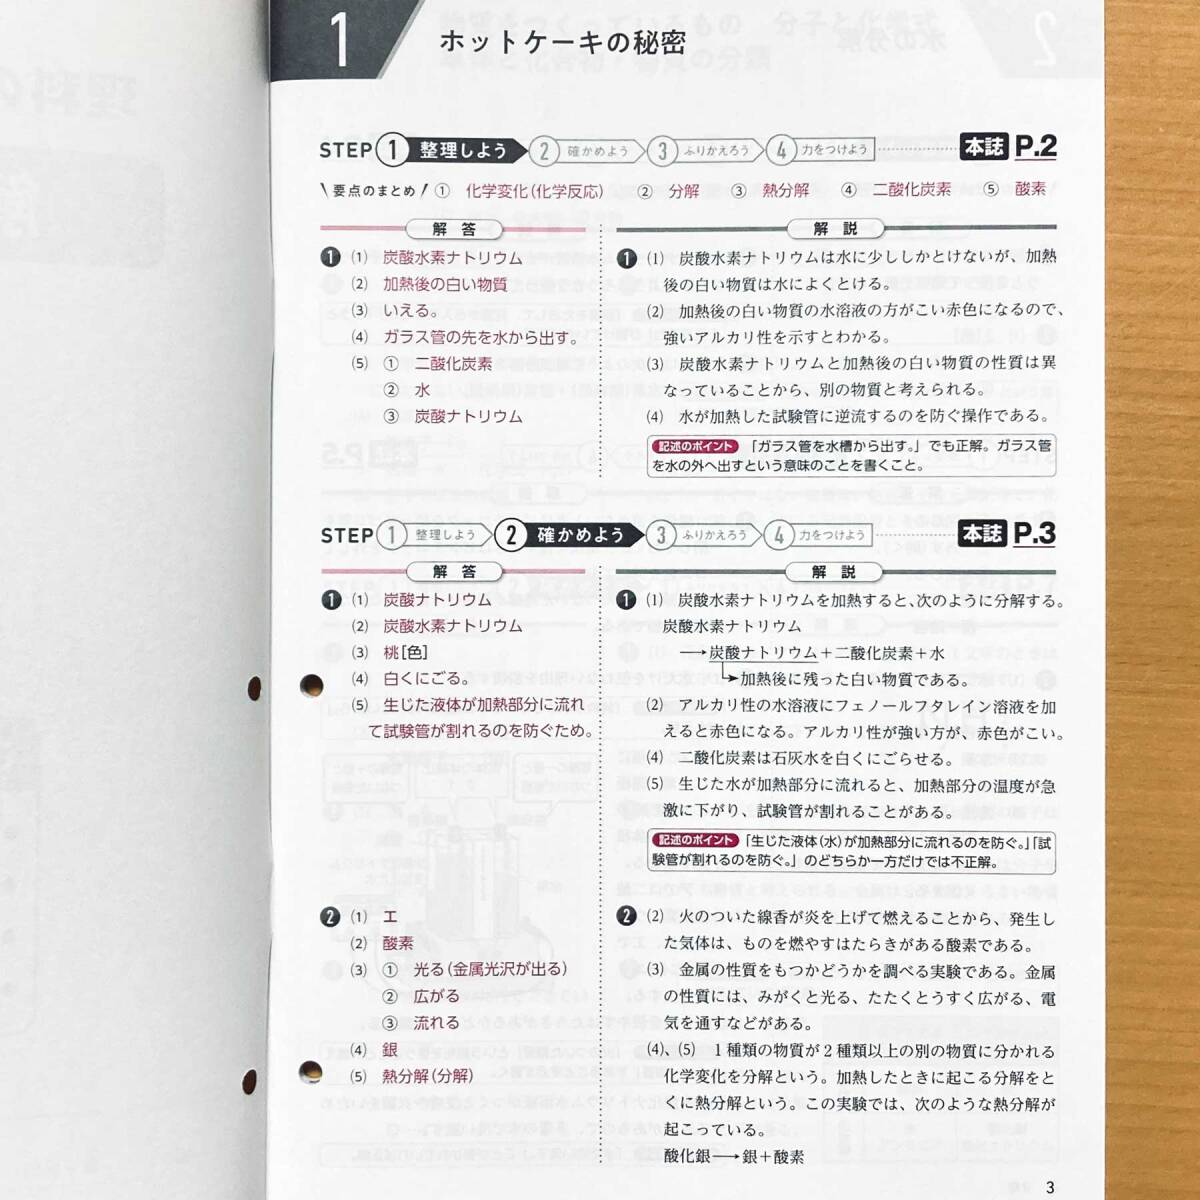 1
ホットケーキの秘密
STEP 1 整理しよう 2 確かめよう 3 ふりかえろう 4 力をつけよう 本誌 P.2
要点のまとめ ① 化学変化(化学反応) ② 分解 ③ 熱分解 ④ 二酸化炭素 ⑤ 酸素
解答
❶ (1) 炭酸水素ナトリウム
(2) 加熱後の白い物質
(3) いえる。
(4) ガラス管の先を水から出す。
(5) ① 二酸化炭素
② 水
③ 炭酸ナトリウム
解説
❶ (1) 炭酸水素ナトリウムは水に少ししかとけないが、加熱
後の白い物質は水によくとける。
(2) 加熱後の白い物質の水溶液の方がこい赤色になるので、
強いアルカリ性を示すとわかる。
(3) 炭酸水素ナトリウムと加熱後の白い物質の性質は異
なっていることから、別の物質と考えられる。
(4) 水が加熱した試験管に逆流するのを防ぐ操作である。
記述のポイント 「ガラス管を水槽から出す。」でも正解。ガラス管
を水の外へ出すという意味のことを書くこと。
STEP 1 整理しよう 2 確かめよう 3 ふりかえろう 4 力をつけよう 本誌 P.3
解答
❶ (1) 炭酸ナトリウム
(2) 炭酸水素ナトリウム
(3) 桃[色]
(4) 白くにごる。
(5) 生じた液体が加熱部分に流れ
て試験管が割れるのを防ぐため。
解説
❶ (1) 炭酸水素ナトリウムを加熱すると、次のように分解する。
炭酸水素ナトリウム
→炭酸ナトリウム+二酸化炭素+水
加熱後に残った白い物質である。
(2) アルカリ性の水溶液にフェノールフタレイン溶液を加
えると赤色になる。アルカリ性が強い方が、赤色がこい。
(4) 二酸化炭素は石灰水を白くにごらせる。
(5) 生じた水が加熱部分に流れると、加熱部分の温度が急
激に下がり、試験管が割れることがある。
記述のポイント 「生じた液体(水)が加熱部分に流れるのを防ぐ。」「試
験管が割れるのを防ぐ。」のどちらか一方だけでは不正解。
❷ (1) エ
(2) 酸素
(3) ① 光る(金属光沢が出る)
② 広がる
③ 流れる
(4) 銀
(5) 熱分解(分解)
❷ (2) 火のついた線香が炎を上げて燃えることから、発生し
た気体は、ものを燃やすはたらきがある酸素である。
(3) 金属の性質をもつかどうかを調べる実験である。金属
の性質には、みがくと光る、たたくとうすく広がる、電
気を通すなどがある。
(4)、(5) 1種類の物質が2種類以上の別の物質に分かれる
化学変化を分解という。加熱したときに起こる分解をと
くに熱分解という。この実験では、次のような熱分解が
起こっている。
酸化銀→銀+酸素
3